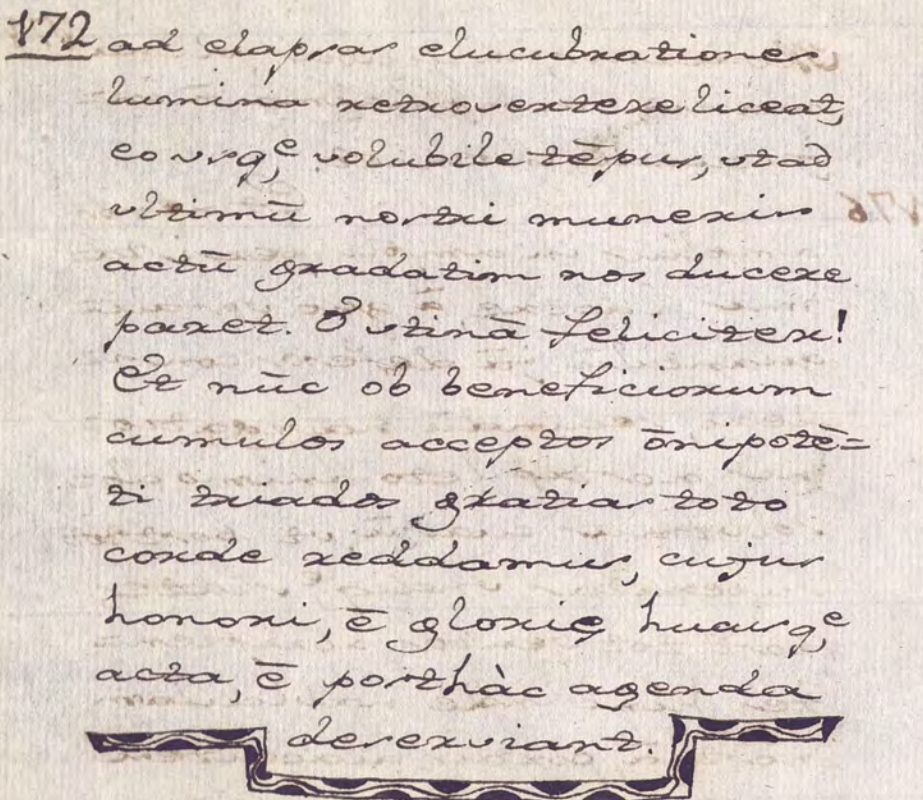 172 ad elapsas elucubrationes
lumina retrovertere liceat,
eo usq,e volubile tēpus, utad
ultimū nostri muneris
actū gradatim nos ducere
paret. O utinā feliciter!
Et nūc ob beneficiorum
cumulos acceptos ōnipotē=
ti triados gratias toto
corde reddamus, cujus
honori, ē glorię hucusq,e
acta, ē posthàc agenda
deserviant.